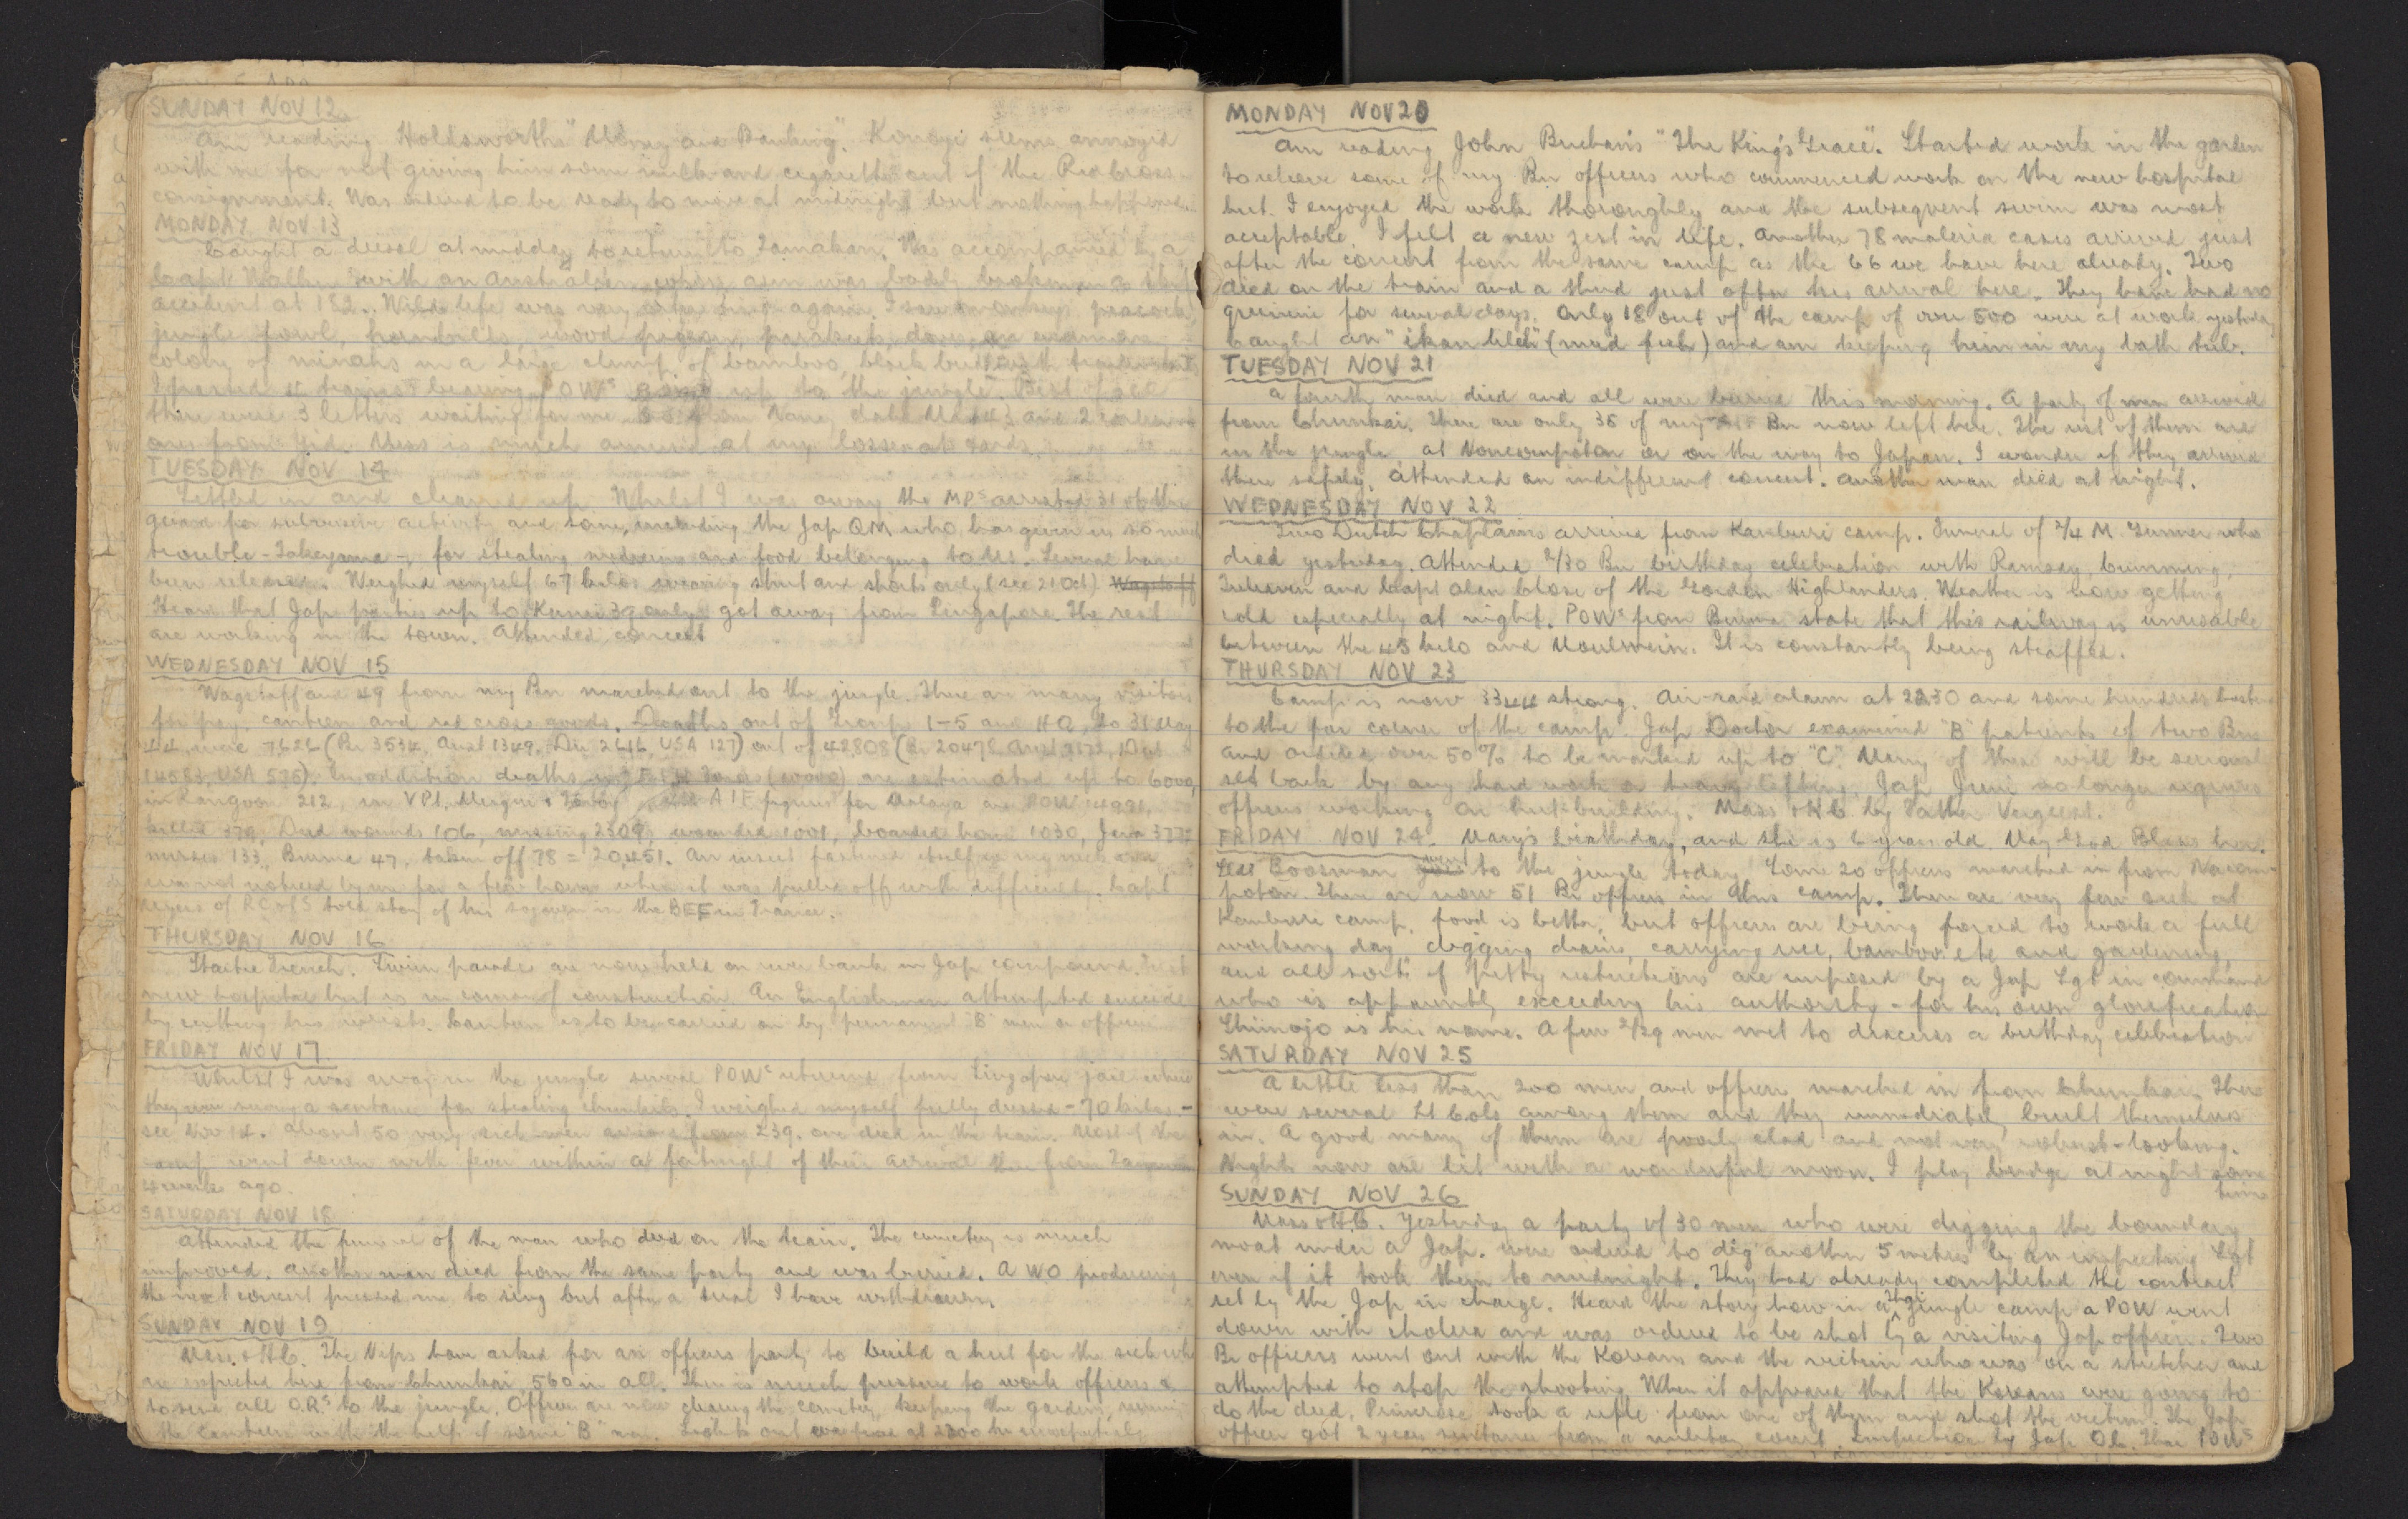 SUNDAY NOV 12
Am reading Holdsworth's "Money and Banking". Konoyi seems annoyed
with me for not giving him some milk and cigarettes out of the Red Cross
consignment. Was ordered to be ready to move at midnight but nothing happened.
MONDAY NOV 13
Caught a diesel at midday to return to Tamakan. Was accompanied by a
Capt with an Australian whose arm was badly broken in a
accident at 182. Wild life was very again. I saw monkeys, peacock,
jungle fowl, hornbills, wood pigeon, parakeets, doves, an enormous
colony of minahs in a large clump of bamboo, black
I passed 4 trains bearing POWs up to the jungle. Best of all
there were 3 letters waiting for me from Nancy and 2 earlier
ones from Sid. Mess is much amused at my losses at cards.
TUESDAY NOV 14
Settled in and cleaned up. Whilst I was away the MPs arrested 31 of the
guard for subversive activity and some, including the Jap QM who has given us so much
trouble - Takeyama -, for stealing medicine and food belonging to us. Several have
been released. Weighed myself 67 kilos wearing shirt and shorts only (see 21 Oct) Wagstaff
Hear that Jap parties up to Kumi 39 only got away from Singapore. The rest
are working in the town. Attended concert
WEDNESDAY NOV 15
Wagstaff and 49 from my Bn marched out to the jungle. There are many visitors
for pay, canteen and red cross goods. Deaths out of Groups 1-5 and HQ, to 31 May
44 were 7626 (Br 3534, Aust 1349, Du 2616, USA 127) out of 42808 (Br 20478, Aust 7172, Dut
14583, USA 575). In addition deaths in F & H Forces (10000) are estimated up to 6000,
in Rangoon 212, in VPt, Mergui & Tavoy AIF figures for Malaya are POW 14991,
killed 379, Died wounds 106, missing 2309, wounded 1001, boarded home 1030, Java 377
nurses 133, Burma 47, taken off 78 = 20,451. An insect fastened itself to my neck and
was not noticed by me for a few hours when it was pulled off with difficulty. Capt
of RC of S told story of his sojourn in the BEF in France.
THURSDAY NOV 16
Started French. Swim parades are now held on river bank in Jap compound.
new hospital hut is in course of construction. An Englishman attempted suicide
by cutting his wrists. Canteen is to be carried on by permanent "B" men or officers
FRIDAY NOV 17
Whilst I was away in the jungle several POWs returned from Singapore jail where
they were serving a sentence for stealing. I weighed myself fully dressed - 70 kilos -
see Nov 14. About 50 very sick men arrived from 239, one died in the train. Most of the
camp went down with fever within a fortnight of their arrival there from
4 weeks ago.
SATURDAY NOV 18
Attended the funeral of the man who died on the train. The cemetery is much
improved. Another man died from the same party and was buried. A WO producing
the next concert pressed me to sing but after a trial I have withdrawn.
SUNDAY NOV 19
Mass & HC. The Nips have asked for an officers party to build a hut for the sick who
are expected here from Chunkai, 560 in all. There is much pressure to work officers &
to send all O.R.s to the jungle. Officers are now clearing the cemetery, keeping the garden, running
the canteen with the help of some "B" men. Lights out at 2300 hrs
MONDAY NOV 20
Am reading John Buchan's "The King's Grace". Started work in the garden
to relieve some of my Bn officers who commenced work on the new hospital
hut. I enjoyed the work thoroughly and the subsequent swim was most
acceptable. I felt a new zest in life. Another 78 malaria cases arrived just
after the concert from the same camp as the 66 we have here already. Two
died on the train and a third just after his arrival here. They have had no
quinine for several days. Only 18 out of the camp of over 500 were at work yesterday
Caught an "ikan lileh" (mud fish) and am keeping him in my bath tub.
TUESDAY NOV 21
A fourth man died and all were buried this morning. A party of men arrived
from Chunkai. There are only 35 of my Bn now left here. The rest of them are
in the jungle, at Nonconpaton or on the way to Japan. I wonder if they arrived
there safely. Attended an indifferent concert. Another man died at night.
WEDNESDAY NOV 22
Two Dutch Chaplains arrived from Kanburi camp. Funeral of 2/4 M. Gunner who
died yesterday. Attended 2/30 Bn birthday celebration with Ramsay, Cumming,
Treleaven and Capt Alan Close of the Gordon Highlanders. Weather is now getting
cold especially at night. POWs from Burma state that this railway is unusable
between the 45 kilo and Moulmein. It is constantly being straffed.
THURSDAY NOV 23
Camp is now 3344 strong. Air-raid alarm at 2230 and some hundreds hastened
to the far corner of the camp. Jap Doctor examined "B" patients of two Bns
and ordered over 50% to be marked up to "C". Many of them will be seriously
set back by any hard work or heavy lifting. Jap Juni no longer requires
officers working on hut-building. Mass & HC by Father Vergeest.
FRIDAY NOV 24. Mary's birthday, and she is 6 years old. May God Bless her.
Boosman went to the jungle today. Some 20 officers marched in from Nacom-
paton. There are now 51 Br officers in this camp. There are very few sick at
Kanburi camp, food is better, but officers are being forced to work a full
working day digging drains, carrying rice, bamboo etc and gardening,
and all sorts of petty restrictions are imposed by a Jap Sgt in command
who is apparently exceeding his authority - for his own glorification
Shimojo is his name. A few 2/29 men met to discuss a birthday celebration
SATURDAY NOV 25
A little less than 200 men and officers marched in from Chunkai. There
were several Lt Cols among them and they immediately built themselves
in. A good many of them are poorly clad and not very robust-looking.
Nights now are lit with a wonderful moon. I play bridge at night some
times
SUNDAY NOV 26
Mass & HC. Yesterday a party of 30 men who were digging the boundary
moat under a Jap. were ordered to dig another 5 metres by an inspecting Sgt
even if it took them to midnight. They had already completed the contract
set by the Jap in charge. Heard the story how in a Thai jungle camp a POW went
down with cholera and was ordered to be shot by a visiting Jap officer. Two
Br officers went out with the Koreans and the victim who was on a stretcher and
attempted to stop the shooting. When it appeared that the Koreans were going to
do the deed, Primrose took a rifle from one of them and shot the victim. The Jap
officer got 2 years sentence from a military court. Inspection by Jap Ob. Three POWs